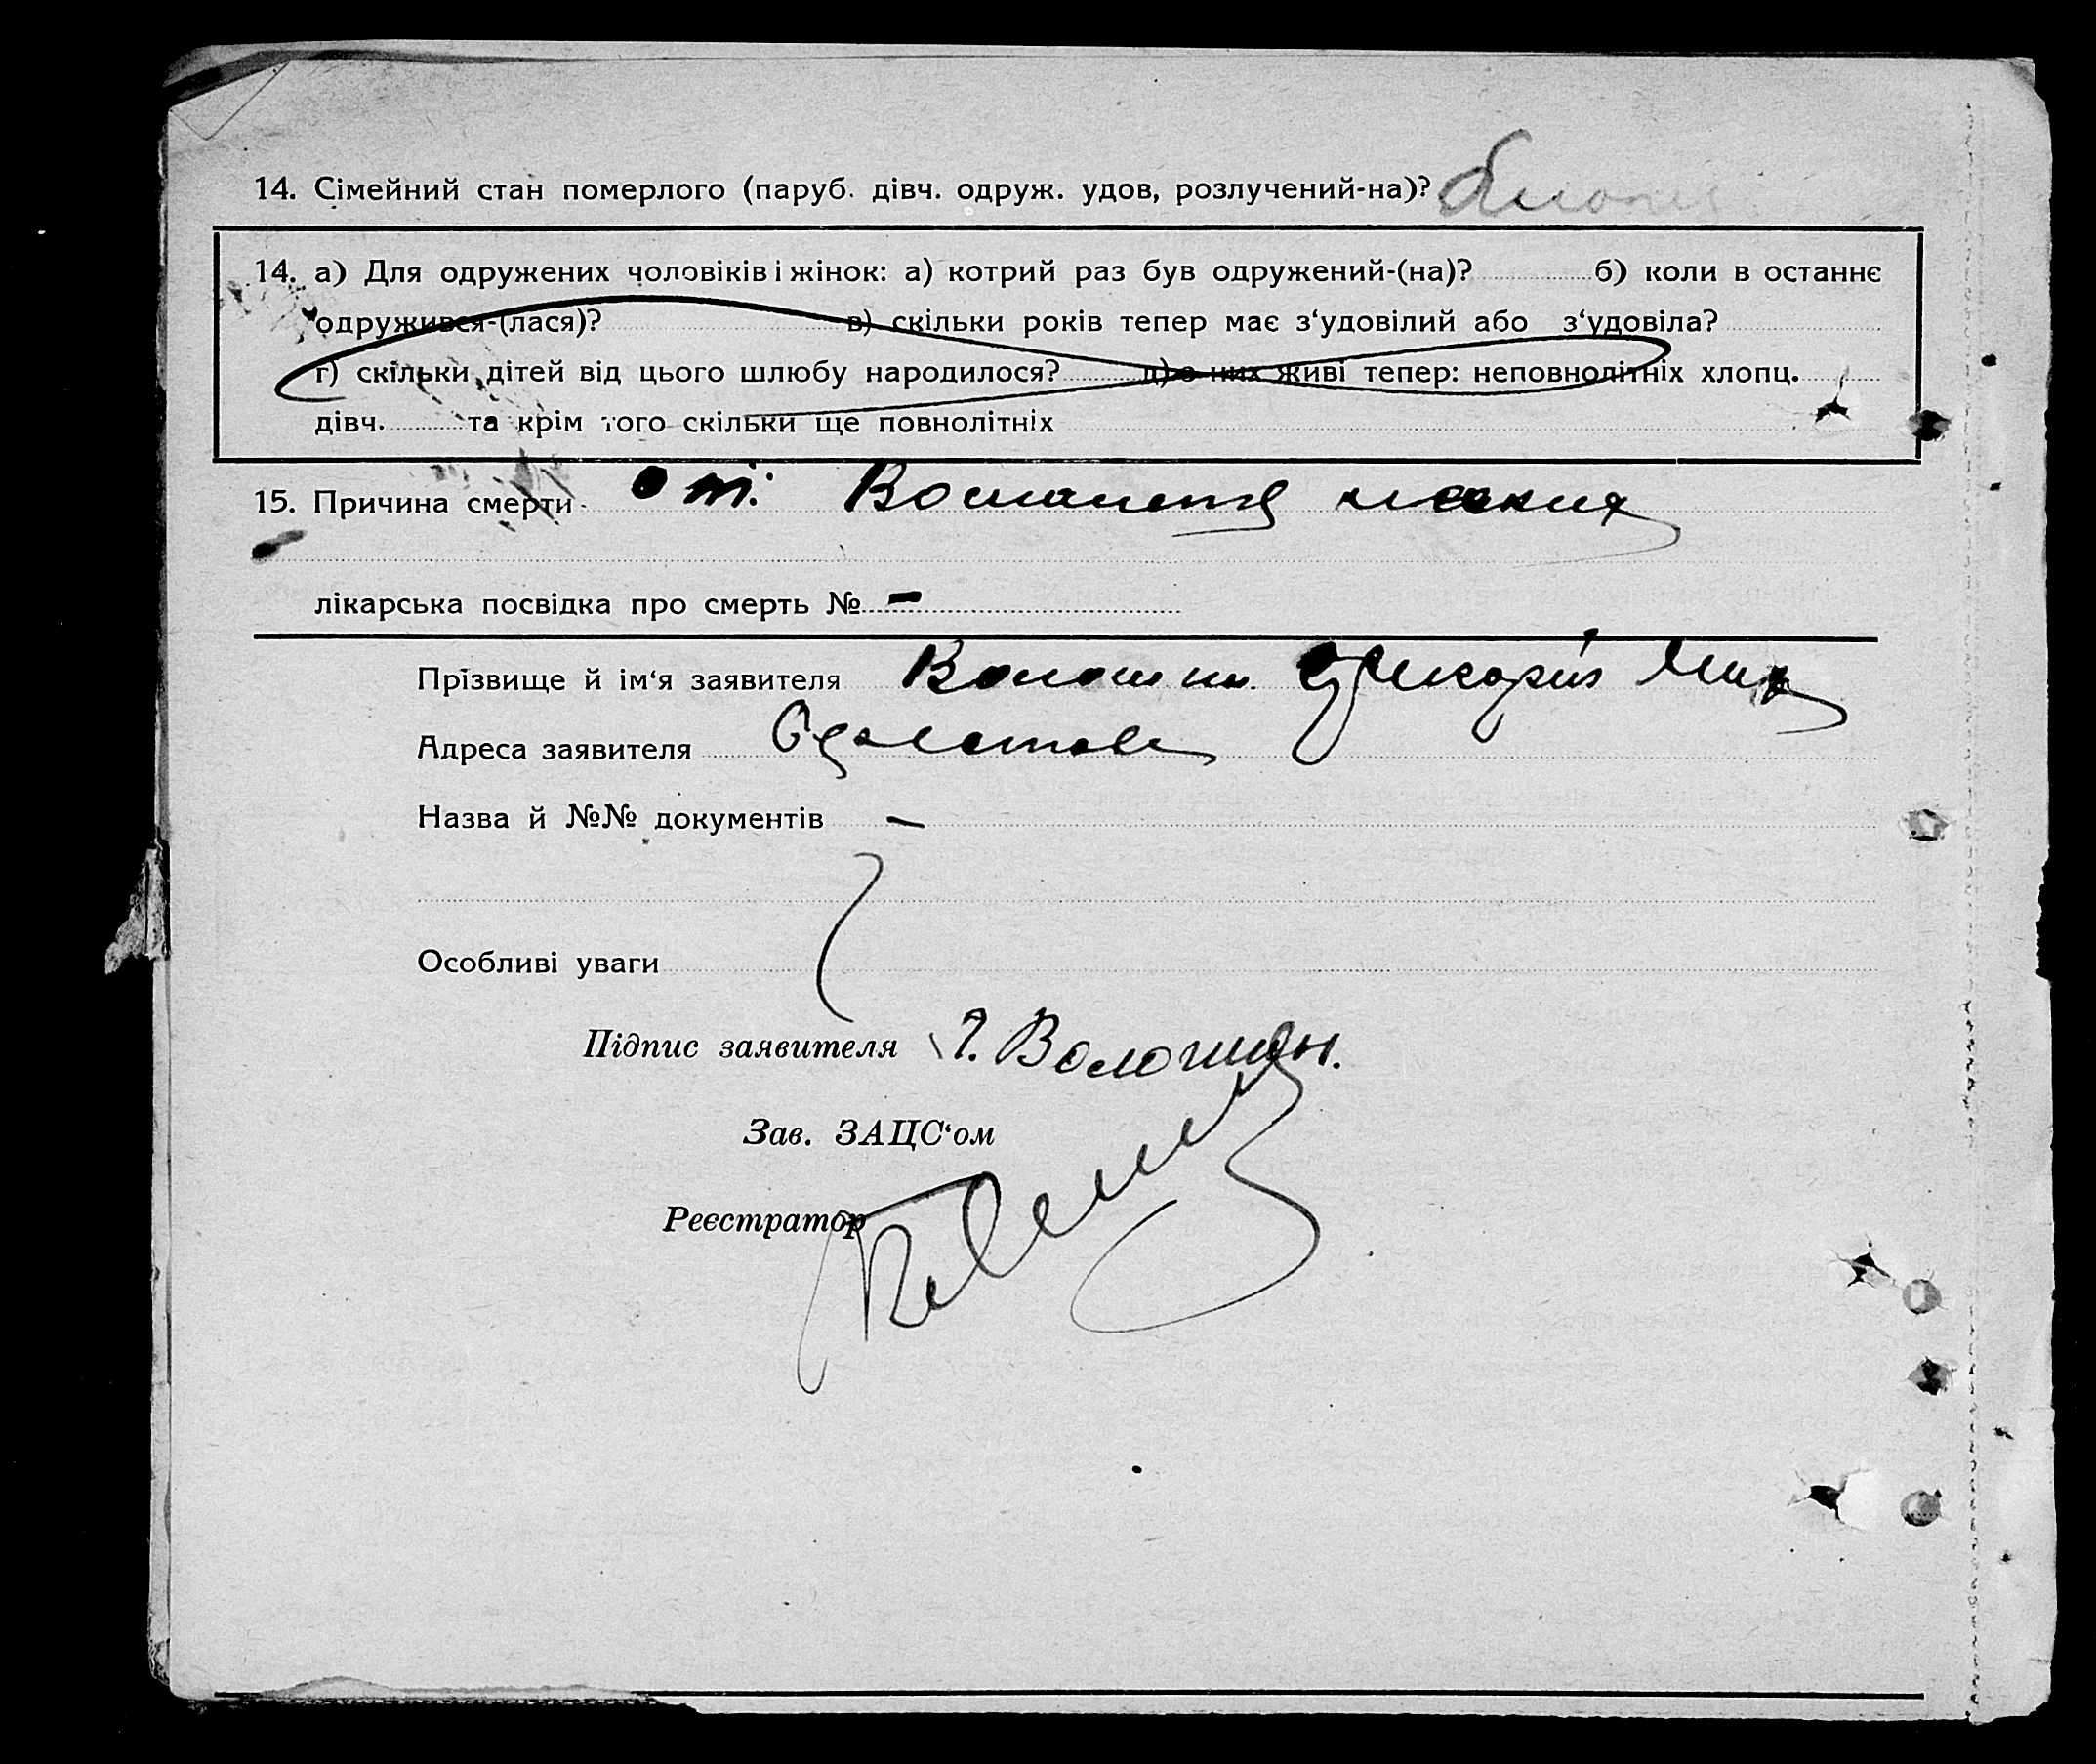 14. Сімейний стан померлого (паруб. дівч. одруж. удов, розлучений-на)?
14. а) Для одружених чоловіків і жінок: а) котрий раз був одружений-(на)? б) коли в останнє
одружився-(лася)? в) скільки років тепер має з‘удовілий або з‘удовіла?
г) скільки дітей від цього шлюбу народилося? д) з них живі тепер: неповнолітніх хлопц.
дівч. та крім того скільки ще повнолітніх
15. Причина смерти от: Воспаления легких
лікарська посвідка про смерть № -
Прізвище й ім‘я заявителя Волошин Григорій
Адреса заявителя
Назва й №№ документів -
Особливі уваги
Підпис заявителя Г. Волошин.
Зав. ЗАЦС‘ом
Реєстратор